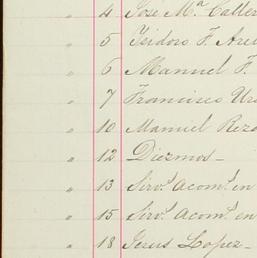 " 4 José Mª Caller
" 5 Isidoro F. Are
" 6 Manuel F.
" 7 Francisco Urs
" 10 Manuel Reza
" 12 Diezmos _
" 13 Sirvˢ. acomˢ. en
" 15 Sirvˢ. acomˢ. en
" 18 Jesus Lopez _